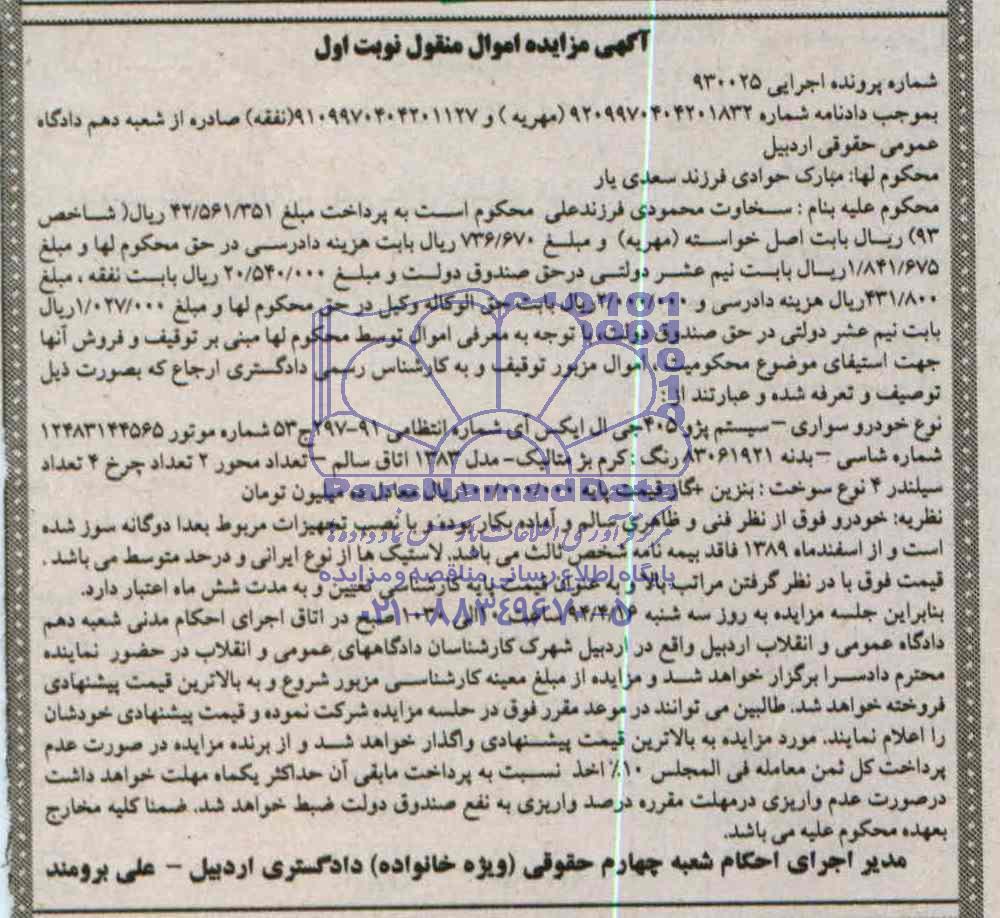 آگهی مزایده اموال منقول نوبت اول
شماره پرونده اجرایی ۹۳۰۰۲۵
بموجب دادنامه شماره ۹۲۰۹۹۷۰۴۰۴۲۰۱۸۳۲ (مهریه ) و ۹۱۰۹۹۷۰۴۰۴۲۰۱۱۲۷(نفقه) صادره از شعبه دهم دادگاه
عمومی حقوقی اردبیل
محکوم لها: مبارک حوادی فرزند سعدی یار
محکوم علیه بنام : سخاوت محمودی فرزندعلی محکوم است به پرداخت مبلغ ۴۲/۵۶۱/۳۵۱ ریال( شاخص
۹۳) ریال بابت اصل خواسته (مهریه) و مبلغ ۷۳۶/۶۷۰ ریال بابت هزینه دادرسی در حق محکوم لها و مبلغ
۱/۸۴۱/۶۷۵ریال بابت نیم عشر دولتی درحق صندوق دولت و مبلغ ۲۰/۵۴۰/۰۰۰ ریال بابت نفقه ، مبلغ
۴۳۱/۸۰۰ریال هزینه دادرسی و ۲/۰۰۰/۰۰۰ریال بابت حق الوکاله وکیل در حق محکوم لها و مبلغ ۱/۰۲۷/۰۰۰ریال
بابت نیم عشر دولتی در حق صندوق دولت، با توجه به معرفی اموال توسط محکوم لها مبنی بر توقیف و فروش آنها
جهت استیفای موضوع محکومیت ، اموال مزبور توقیف و به کارشناس رسمی دادگستری ارجاع که بصورت ذیل
توصیف و تعرفه شده و عبارتند از :
نوع خودرو سواری –سیستم پژو ۴۰۵جی ال ایکس آی شماره انتظامی ۹۱-۲۹۷ج۵۳ شماره موتور ۱۲۴۸۳۱۴۴۵۶۵
شماره شاسی –بدنه ۸۳۰۶۱۹۲۱ رنگ : کرم بژ متالیک- مدل ۱۳۸۳ اتاق سالم – تعداد محور ۲ تعداد چرخ ۴ تعداد
سیلندر ۴ نوع سوخت : بنزین +گاز قیمت پایه ۱۰۰/۰۰۰/۰۰۰ریال معادل ده میلیون تومان
نظریه: خودرو فوق از نظر فنی و ظاهری سالم و آماده بکار بوده و با نصب تجهیزات مربوط بعدا دوگانه سوز شده
است و از اسفندماه ۱۳۸۹ فاقد بیمه نامه شخص ثالث می باشد. لاستیک ها از نوع ایرانی و درحد متوسط می باشد .
قیمت فوق با در نظر گرفتن مراتب بالا و با عنوان قیمت پایه کارشناسی تعیین و به مدت شش ماه اعتبار دارد.
بنابراین جلسه مزایده به روز سه شنبه ۹۴/۴/۱۶ ساعت الی ۱۰-۳۰ صبح در اتاق اجرای احکام مدنی شعبه دهم
دادگاه عمومی و انقلاب اردبیل واقع در اردبیل شهرک کارشناسان دادگاههای عمومی و انقلاب در حضور نماینده
محترم دادسرا برگزار خواهد شد و مزایده از مبلغ معینه کارشناسی مزبور شروع و به بالاترین قیمت پیشنهادی
فروخته خواهد شد. طالبین می توانند در موعد مقرر فوق در جلسه مزایده شرکت نموده و قیمت پیشنهادی خودشان
را اعلام نمایند. مورد مزایده به بالاترین قیمت پیشنهادی واگذار خواهد شد و از برنده مزایده در صورت عدم
پرداخت کل ثمن معامله فی المجلس ۱۰٪ اخذ نسبت به پرداخت مابقی آن حداکثر یکماه مهلت خواهد داشت
درصورت عدم واریزی درمهلت مقرره درصد واریزی به نفع صندوق دولت ضبط خواهد شد. ضمنا کلیه مخارج
بعهده محکوم علیه می باشد.
مدیر اجرای احکام شعبه چهارم حقوقی (ویژه خانواده) دادگستری اردبیل – علی برومند
ParsNamadData
پایگاه اطلاع رسانی مناقصه و مزایده
۰۲۱-۸۸۳۴۹۶۷۰-۵